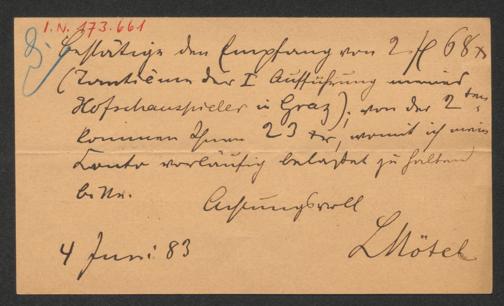 I.N. 173.661
Bestätige den Empfang von 2 fl 68 x
(Tantième der I Aufführung meines
Hofschauspieler in Graz); von der 2ten
kommen Ihnen 23 xr, womit ich mein
Conto vorläufig belastet zu halten
bitte.
Achtungsvoll
4 Juni 83
LMösel